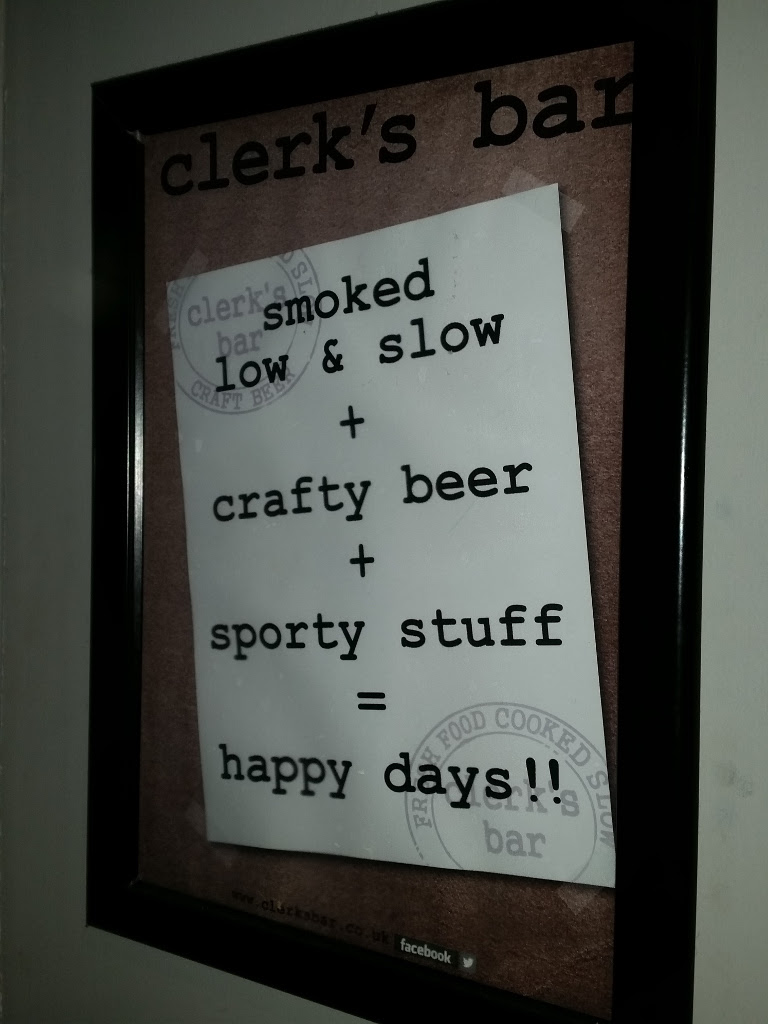 clerk's bar
FRESH FOOD COOKED SLOW
clerk's
bar
CRAFT BEER
smoked
low & slow
+
crafty beer
+
sporty stuff
=
happy days!!
FRESH FOOD COOKED SLOW
clerk's
bar
www.clerksbar.co.uk facebook